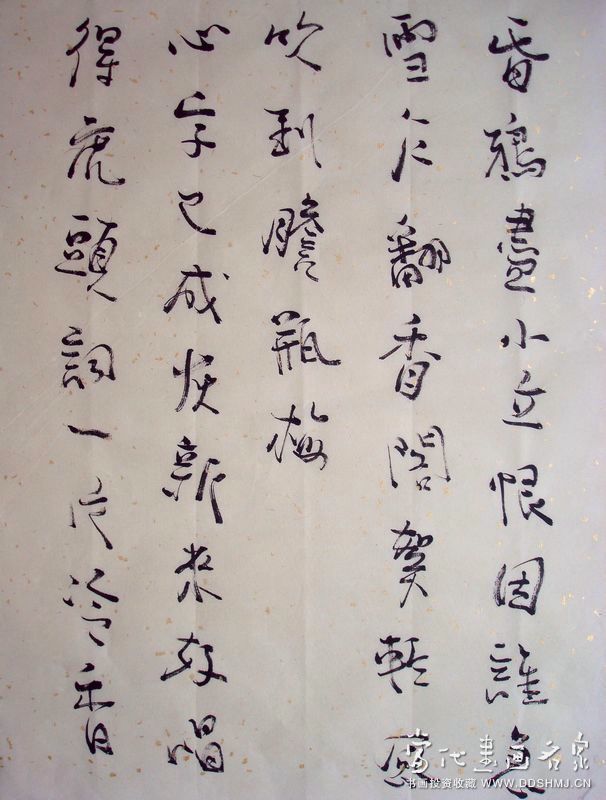 昏鴉盡小立恨因誰急
雪乍翻香閣絮輕風
吹到膽瓶梅
心字已成灰新來好唱
得虎頭詞一片冷香
当代書画名家
书画投资收藏 WWW.DDSHMJ.CN